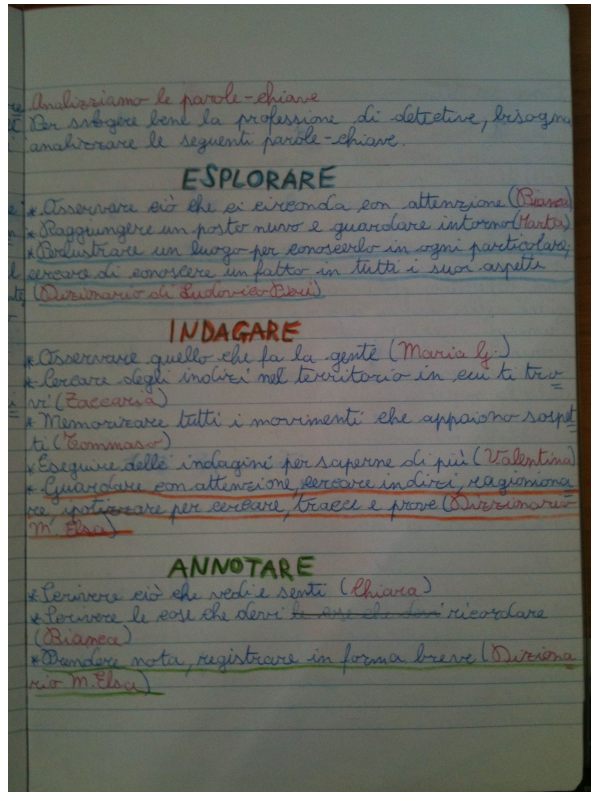 Analizziamo le parole-chiave
Per svolgere bene la professione di detective, bisogna
analizzare le seguenti parole-chiave.
ESPLORARE
* Osservare ciò che ci circonda con attenzione (Bianca)
* Raggiungere un posto nuovo e guardare intorno (Marta)
* Perlustrare un luogo per conoscerlo in ogni particolare;
cercare di conoscere un fatto in tutti i suoi aspetti
(Dizionario di Ludovico)
INDAGARE
* Osservare quello che fa la gente (Maria G.)
* Cercare degli indizi nel territorio in cui ti tro
vi (Zaccaria)
* Memorizzare tutti i movimenti che appaiono sospet
ti (Tommaso)
* Eseguire delle indagini per saperne di più (Valentina)
* Guardare con attenzione, cercare indizi, ragiomona
re ipotizzare per cercare, tracce e prove (Dizzionario
M. Elsa)
ANNOTARE
* Scrivere ciò che vedi e senti (Chiara)
* Scrivere le cose che devi le cose che devi ricordare
(Bianca)
* Prendere nota, registrare in forma breve (Diziona
rio M. Elsa)